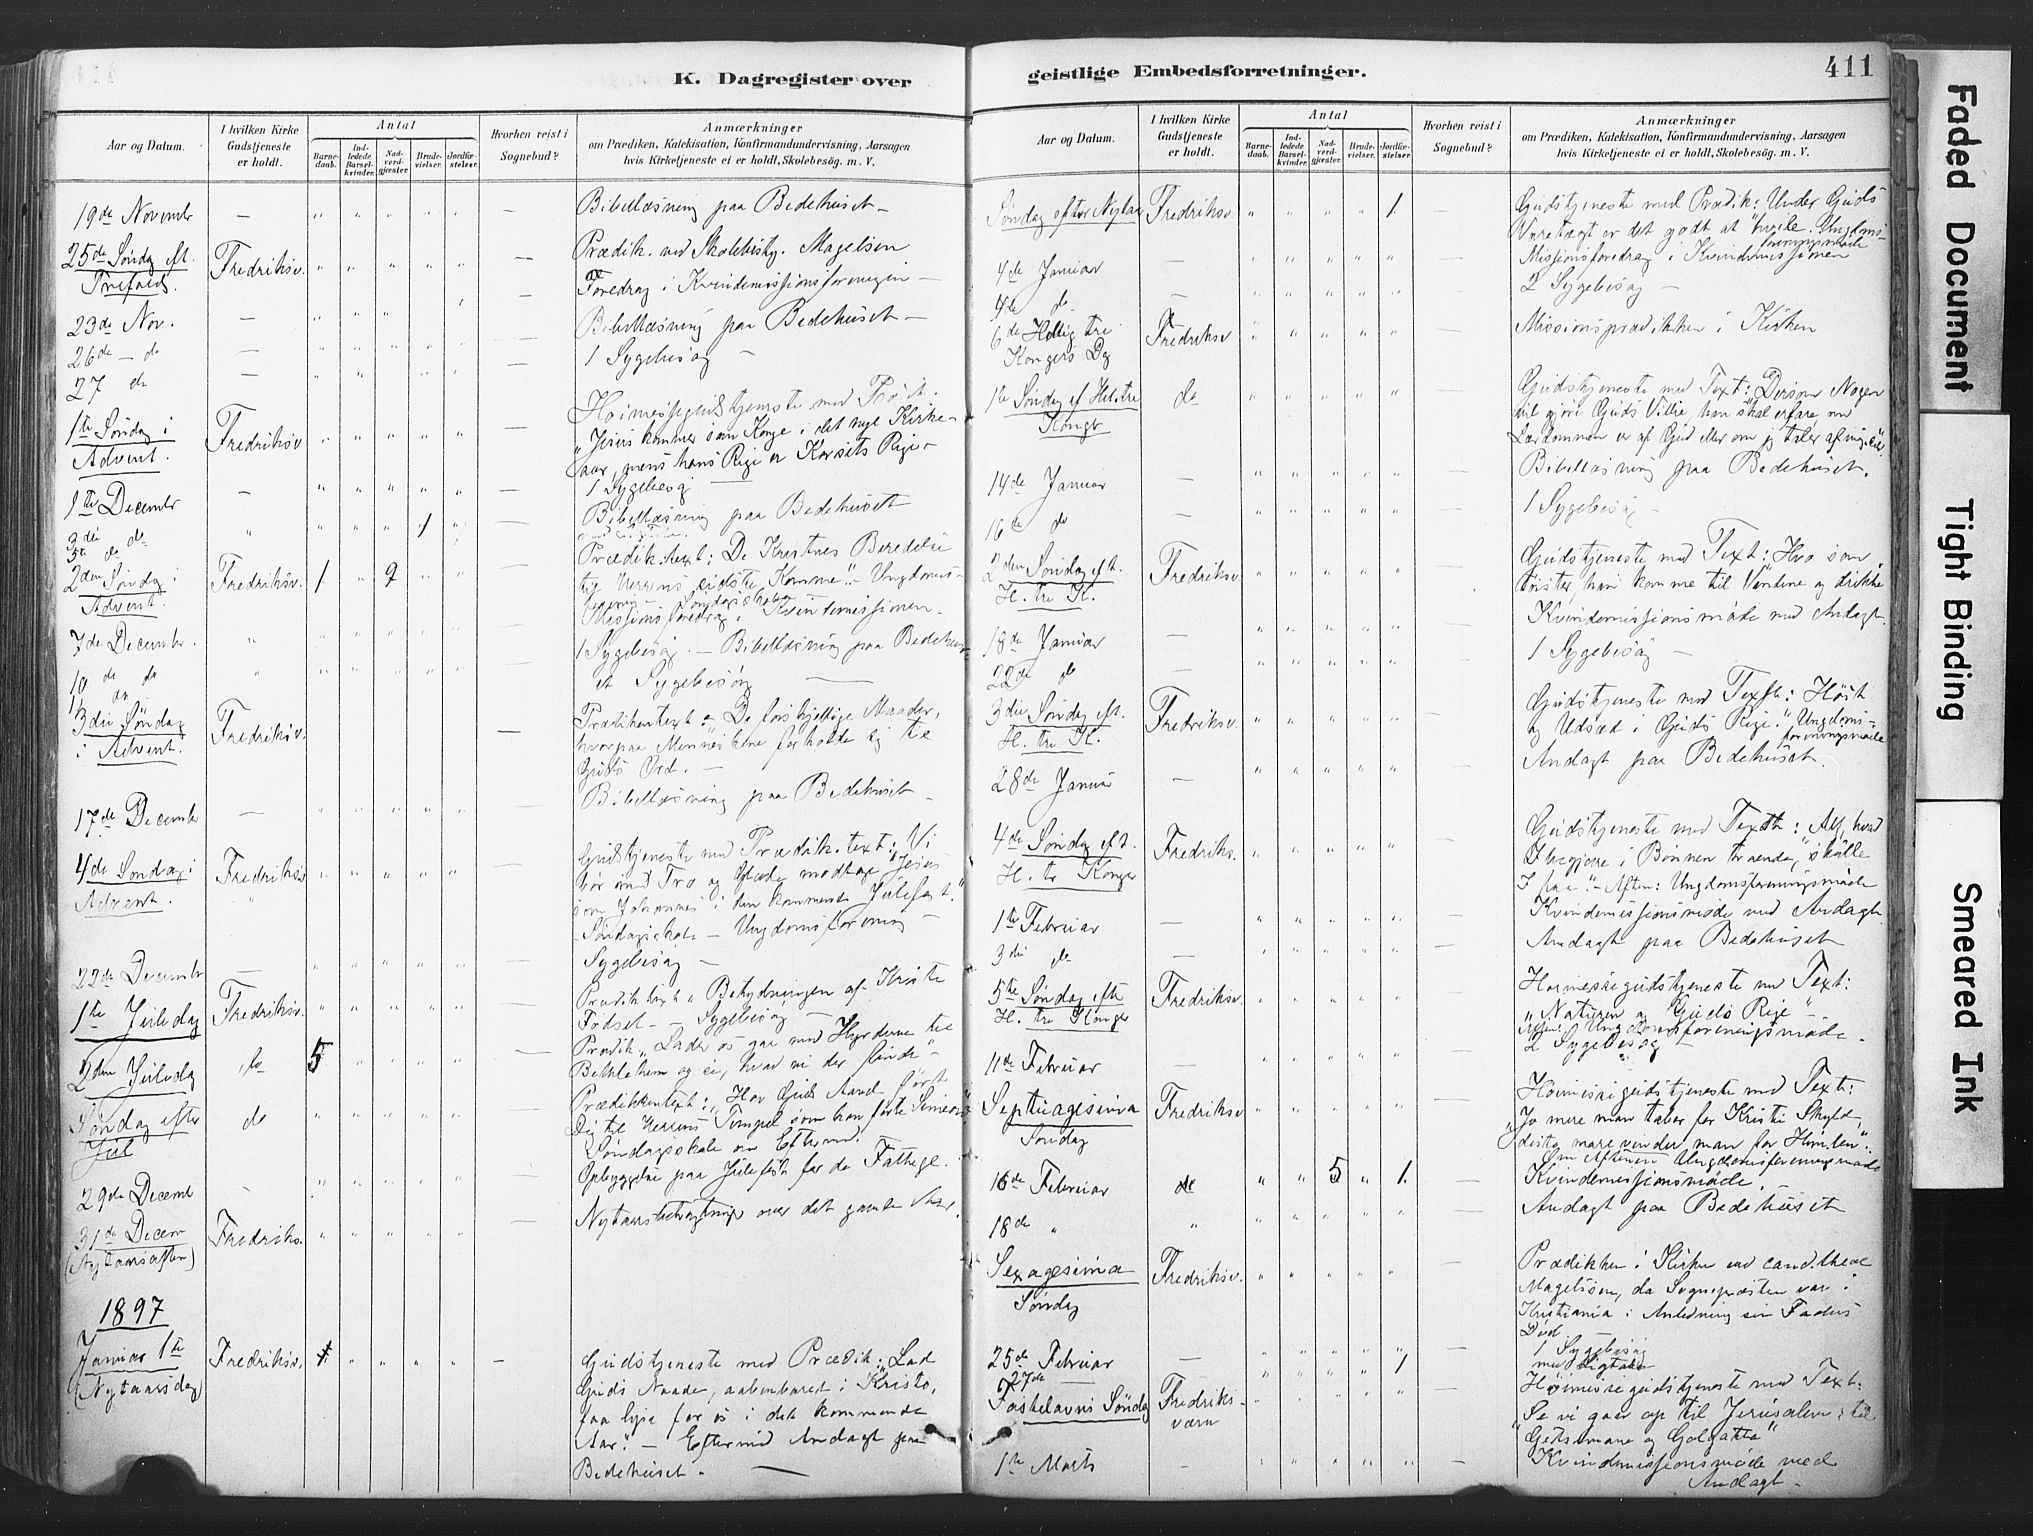 K. Dagregister over
Aar og Datum.
I hvilken Kirke Gudstjeneste er holdt.
Antal
Barnedaab.
Indledede Barselkvinder.
Nadverdgjæster.
Brudevielser.
Jordfæstelser.
Hvorhen reist i Sognebud?
Anmærkninger
om Prædiken, Katekisation, Konfirmandundervisning, Aarsagen
hvis Kirketjeneste ei er holdt, Skolebesøg. m. V.
19de Novembr — Bibellæsning paa Bedehuset —
25de Søndag eft. Fredriksv. Prædik. ved Skolebesty. Magelsen
Trefold.
23de Nov. — Foredrag i Kvindemissionsforenigen —
26de — do — Bibellæsning paa Bedehuset —
27 do — 1 Sygebesøg —
1te Søndag i Fredriksv Høimessegudstjeneste med Prædik.
Advent. "Jesus kommer som Konge i det nye Kirke-
aar, mens hans Rige er Korsets Rige —
1te Decembr — 1 Sygebesøg
3die do 1 Bibellæsning paa Bedehuset
5te do
2den Søndag i Fredriksv. 1 9 Prædik.text: De Kristnes Beredelse
Advent. til Herrens sidste Komme". — Ungdoms-
forening — Søndagsskole
7de Decembr. Missionsforedrag i Kvindemissionen.
10de do 1 Sygebesøg. — Bibellæsning paa Bedehus-
et Sygebesøg
3die Søndag Fredriksv. Prædikentext: De forskjellige Maader,
i Advent. hvorpaa Menneskene forholde sig til
Guds Ord. —
17de Decembr — Bibellæsning paa Bedehuset —
4de Søndag i Fredriksv Gudstjeneste med Prædik.text: Vi
Advent. bør med Tro og Glæde modtage Jesus
som Johannes i den kommende Julefest."
Søndagsskole — Ungdomsforening —
22de Decembr — Sygebesøg —
1te Juledag Fredriksv. Prædiktext "Betydningen af Kristi
Fødsel — Sygebesøg —
2den Juledag do 5 Prædik. "Lader os gaa med Hyrderne til
Bethlehem og se, hvad vi der finde" —
Søndag efter do Prædikentext: "Har Guds Aand ført
Jul Dig til Herrens Tempel som han førte Simeon"
Søndagsskole om Efterm.
29de Decembr — Opbyggelse paa Julefest for de Fattige.
31de Decem Fredriks. Nytaarsbetragtninger over det gamle Aar.
(Nytaarsaften)
1897
Januar 1te Fredriksv. 1 — Gudstjeneste med Prædik: "Lad
(Nytaarsdag) Guds Naade, aabenbaret i Kristo,
faa lyse for os i det kommende
Aar". — Eftermid Andagt paa
Bedehuset. —
geistlige Embedsforretninger.
411
Aar og Datum.
I hvilken Kirke Gudstjeneste er holdt.
Antal
Barnedaab.
Indledede Barselkvinder.
Nadverdgjæster.
Brudevielser.
Jordfæstelser.
Hvorhen reist i Sognebud?
Anmærkninger
om Prædiken, Katekisation, Konfirmandundervisning, Aarsagen
hvis Kirketjeneste ei er holdt, Skolebesøg. m. V.
Søndag efter Nytaar Fredriksv. 1 Gudstjeneste med Prædik: Under Guds
Varetægt er det godt at hvile. Ungdoms-
foreningsmøde
4de Januar — Missionsforedrag i Kvindemissionen
4de do — 2 Sygebesøg —
6de Hellig tre Fredriksv Missionsprædikken i Kirken
Kongers Dag
1te Søndag ef Hel. tre do Gudstjeneste med Text: Dersom Nogen
Konger vil gjøre Guds Villie, han skal erfare om
Lærdommen er af Gud eller om jeg taler af mig selv"
14de Januar — Bibellæsning paa Bedehuset.
16de do — 1 Sygebesøg —
2den Søndag eft. Fredriksv. Gudstjeneste med Text: Hvo som
H. tre K. tørster, han komme til Vandene og drikke
18de Januar — Kvindemissionsmøde med Andagt.
22de do — 1 Sygebesøg —
3die Søndag eft. Fredriksv. Gudstjeneste med Text: Høst
H. tre K. og Udsæd i Guds Rige." Ungdoms-
foreningsmøde
28de Januar — Andagt paa Bedehuset.
4de Søndag eft. Fredriks. Gudstjeneste med Text: Alt, hvad
H. tr Konger I begjære i Bønnen troende, skulle
I faa". — Aften: Ungdomsforeningsmøde
1te Februar — Kvindemissionsmøde med Andagt
3die do — Andagt paa Bedehuset
5te Søndag efte Fredriksv. Høimessegudstjeneste med Text:
H. tre Konger "Naturen og Guds Rige" —
Aften: Ungdomsforeningsmøde.
11de Februar — 2 Sygebesøg —
Septuagesima Fredriksv Høimessegudstjeneste med Text:
Søndag "Jo mere man taber for Kristi Skyld,
desto mere vinder man for Himlen".
Om Aftenen Ungdomsforeningsmøde
16de Februar do 5 1. Kvindemissionsmøde.
18de " " Andagt paa Bedehuset
Sexagesima Fredriksv. Prædikken i Kirken ved cand. theol
Søndag Magelssen, da Sognepræsten var i
Kristiania i Anledning sin Faders
Død.
25de Februar — 1 Sygebesøg
27de — 1 med Ligtale
Fastelavns Søndag Fredriks- Høimessegudstjeneste med Text:
værn "Se vi gaar op til Jerusalem: til
"Getsemane og Golgatha"
1te Marts — Kvindemissionsmøde med
Andagt —
Faded Document
Tight Binding
Smeared Ink